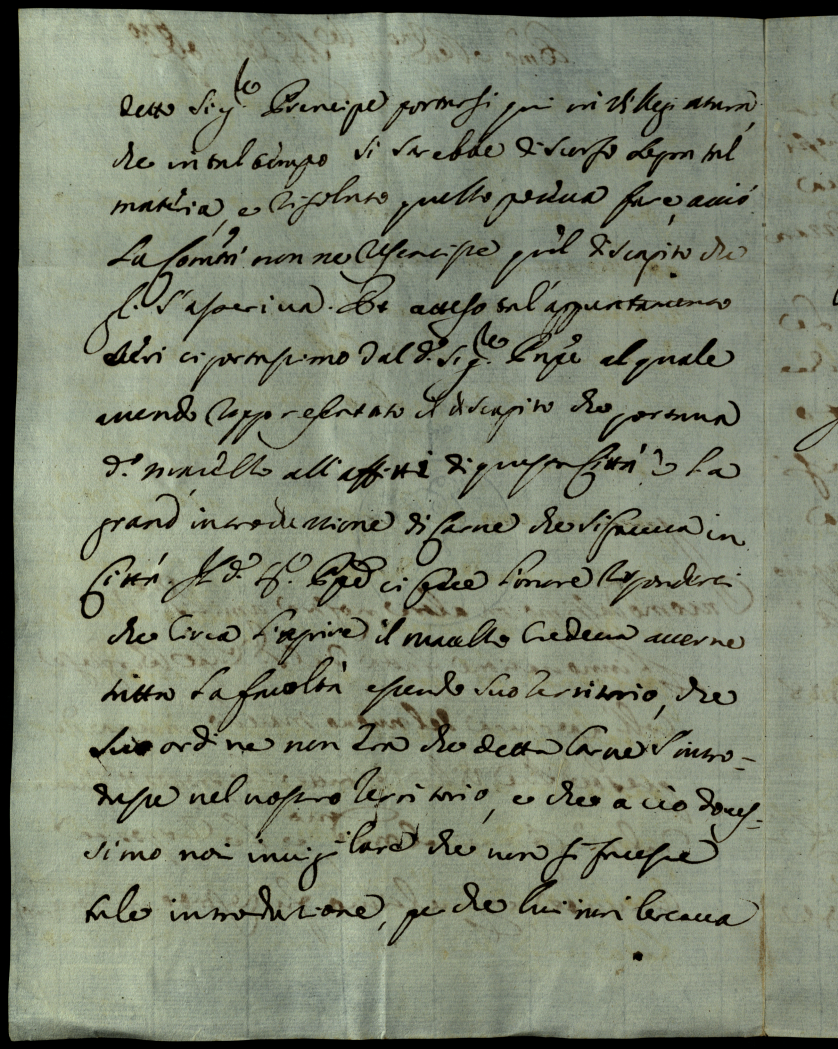 detto Sig.re Prencipe portarsi qui in Villegiatura,
che in tal tempo si sarebbe discorso sopra tal
materia, e risoluto quello poteva fare, acciò
La Comm.tà non ne risentisse q.l discapito che
gl. s'asperiva. Et atteso tal'appuntamento
ieri ci portassimo dal d.o Sig.re Pnpe al quale
avendo rappresentato il discapito che portava
d.o macello all'affitti di questa Città e La
grand'introduttione di Carne che si faceva in
Città. Il d.o Sig.e Pnpe ci fece l'onore risponderci
che Circa l'aprire il macello credeva averne
tutta La facoltà essendo suo Territorio, che
suo ordine non era che detta Carne s'intro=
dusse nel nostro Territorio, e che a ciò doves=
simo noi invigilare che non si facesse
tale introdutione, perche lui non cercava